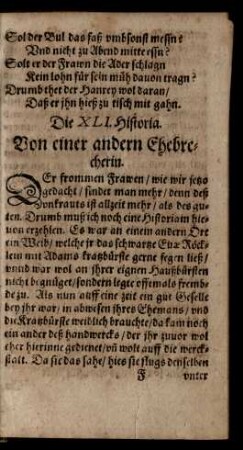 Sol der Bul das faß vmbsonst messn?
Vnd nicht zu Abend mitte essn?
Solt er der Frawn die Ader schlagn
Kein lohn für sein müh dauon tragn?
Drumb thet der Hanrey wol daran/
Daß er jhn hieß zu tisch mit gahn.
Die XLI. Historia.
Von einer andern Ehebre-
cherin.
DEr frommen Frawen/ wie wir jetzo
gedacht/ findet man mehr/ denn deß
Vnkrauts ist allzeit mehr/ als des gu-
ten. Drumb muß ich noch eine Historiam hie-
uon erzehlen. Es war an einem andern Ort
ein Weib/ welche jr das schwartze Euæ Röck-
lein mit Adams kratzbürste gerne fegen ließ/
vnnd war wol an jhrer eignen Haußbürsten
nicht begnüget/ sondern legte offtmals frembde
dezu. Als nun auff eine zeit ein gut Geselle
bey jhr war/ in abwesen jhres Ehemans/ vnd
die Kratzbürste weidlich brauchte/ da kam noch
ein ander deß handwercks/ der jhr zuuor wol
eher hierinne gedienet/ vñ wolt auff die werck-
stalt. Da sie das sahe/ hies sie flugs denselben
F vnter